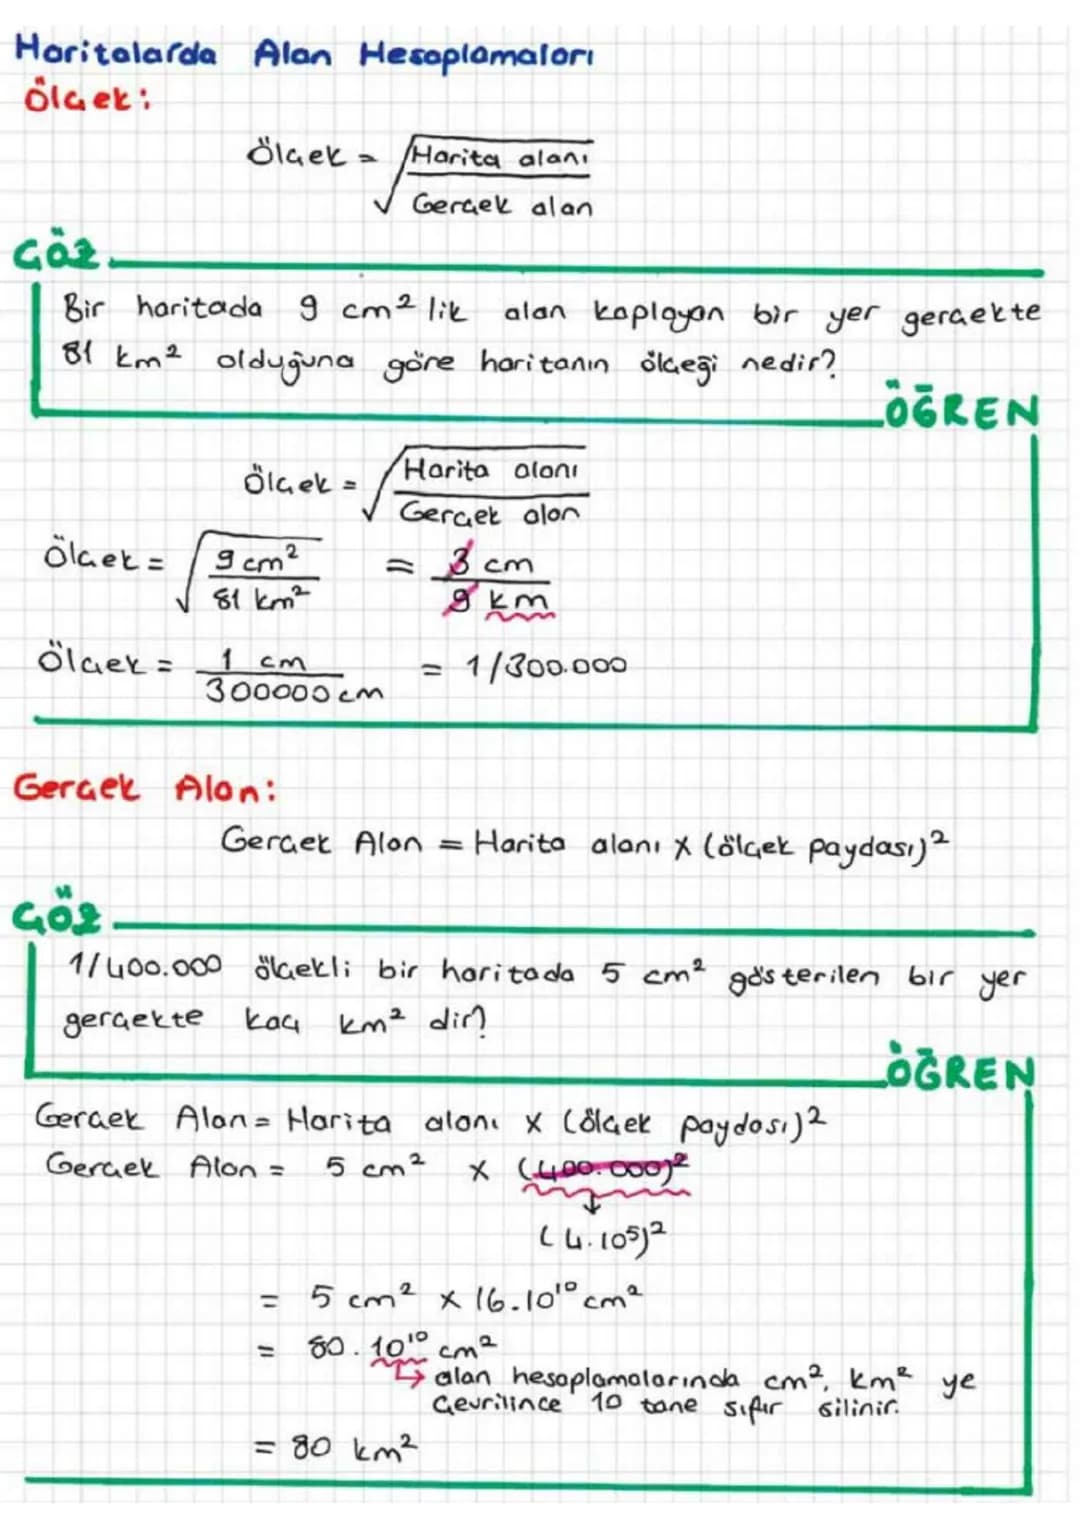 Haritalarda Alan Hesaplamaları
Ölçek:
Ölçek = √ Harita alanı
Gerçek alan
ÇÖZ
Bir haritada 9 cm² lik alan kaplayan bir yer gerçekte
81 km² olduğuna göre haritanın ölçeği nedir?
ÖĞREN
Ölçek = √ Harita alanı
Gerçek alan
Ölçek = √ 9 cm² = 3 cm
81 km² 9 km
Ölçek = 1 cm = 1/300.000
300000 cm
Gerçek Alan:
Gerçek Alan = Harita alanı x (ölçek paydası)²
ÇÖZ
1/400.000 ölçekli bir haritada 5 cm² gösterilen bir yer
gerçekte kaç km² dir?
ÖĞREN
Gerçek Alan = Harita alanı x (ölçek paydası)²
Gerçek Alan = 5 cm² x (400.000)²
↓
(4.10⁵)²
= 5 cm² x 16.10¹⁰ cm²
= 80.10¹⁰ cm²
↳ alan hesaplamalarında cm², km² ye
çevrilince 10 tane sıfır silinir.
= 80 km²